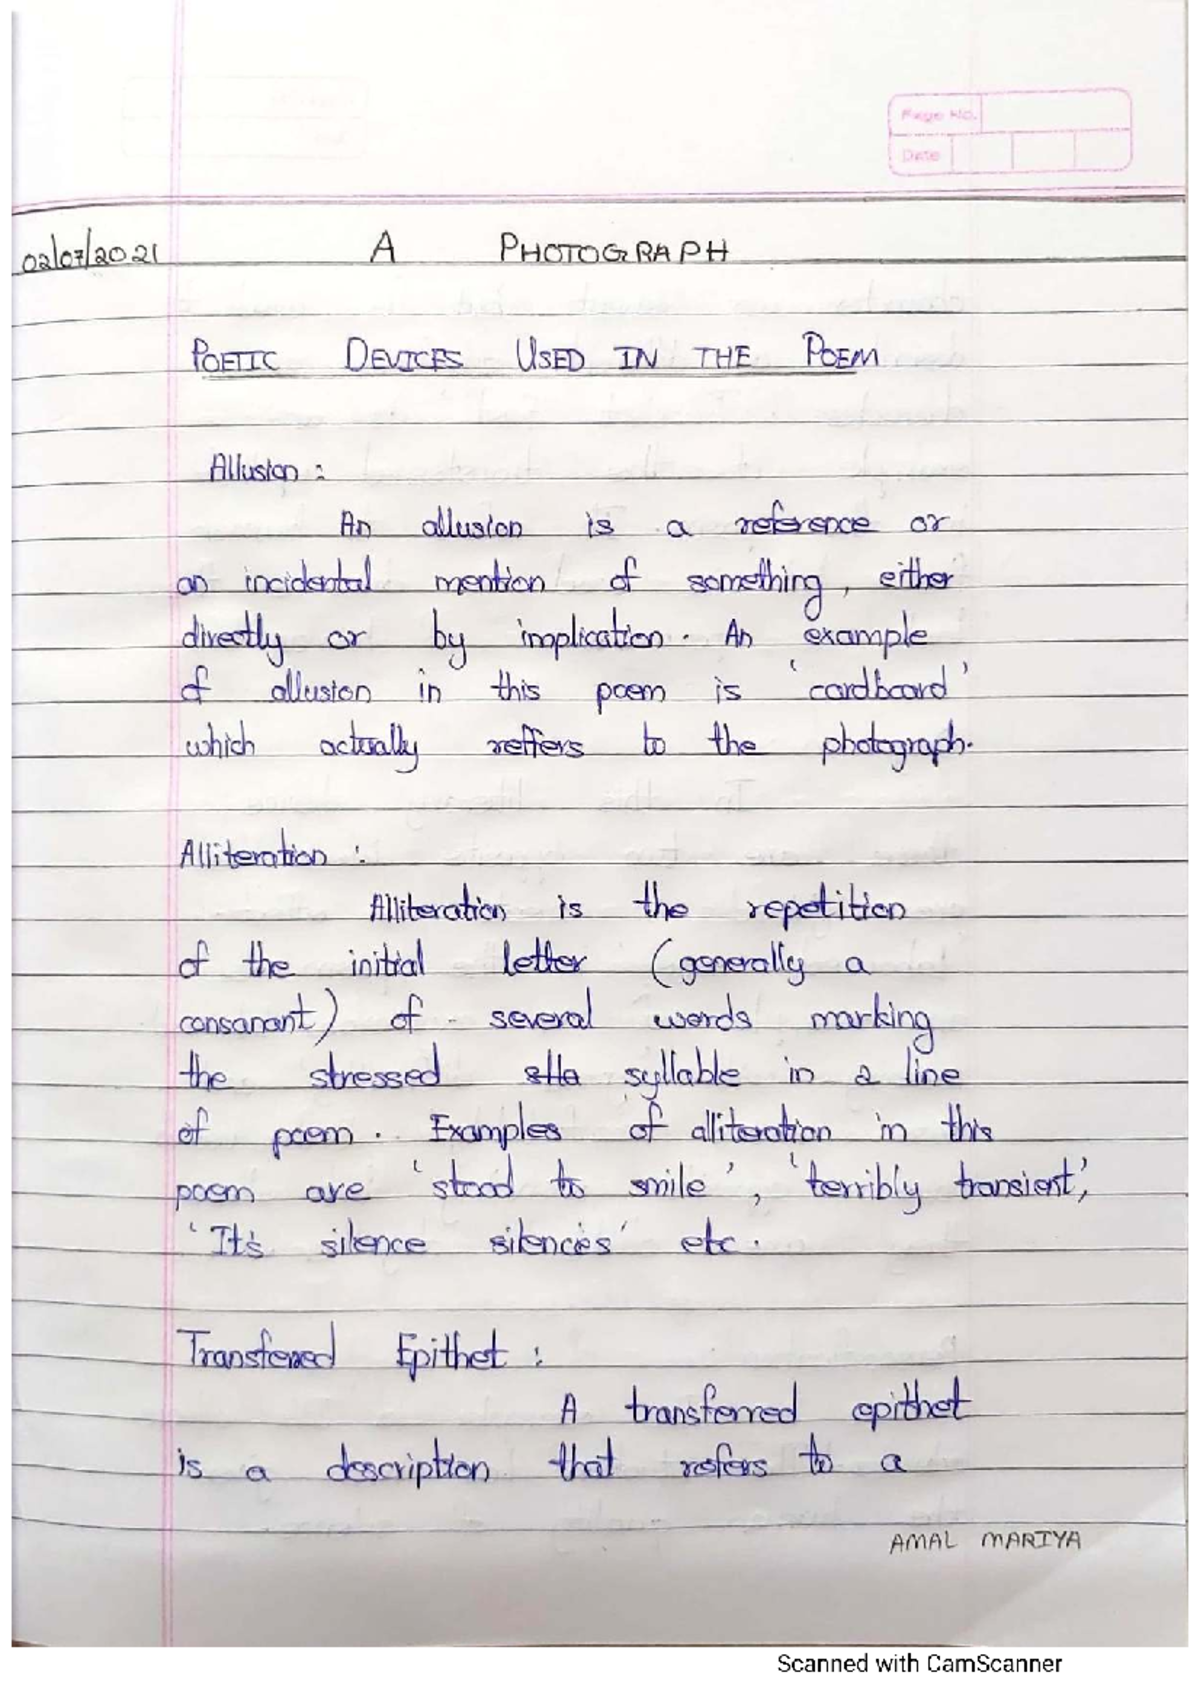 Page No.
Date
02/07/2021 A PHOTOGRAPH
POETIC DEVICES USED IN THE POEM
Allusion :
An allusion is a reference or
an incidental mention of something, either
directly or by implication. An example
of allusion in this poem is 'cardboard'
which actually reffers to the photograph.
Alliteration :
Alliteration is the repetition
of the initial letter (generally a
consanant) of several words marking
the stressed syllable in a line
of poem. Examples of alliteration in this
poem are 'stood to smile', 'terribly transient',
'It's silence silences' etc.
Transferred Epithet :
A transferred epithet
is a description that refers to a
AMAL MARIYA
Scanned with CamScanner